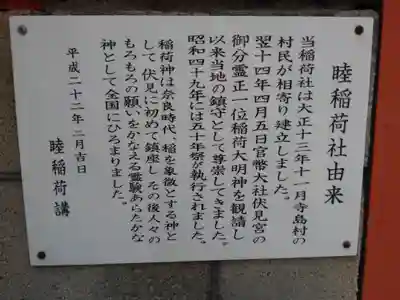 睦稲荷社由来
当稲荷社は大正十三年十一月寺島村の
村民が相寄り建立しました。
翌十四年四月五日官幣大社伏見宮の
御分霊正一位稲荷大明神を観請し
以来当地の鎮守として尊崇してきました。
昭和四十九年には五十年祭が執行されました。
稲荷神は奈良時代、稲を象徴とする神と
して伏見に初めて鎮座し その後人々の
もろもろの願いをかなえる霊験あらたかな
神として全国にひろまりました。
平成二十二年 二月吉日
睦稲荷講